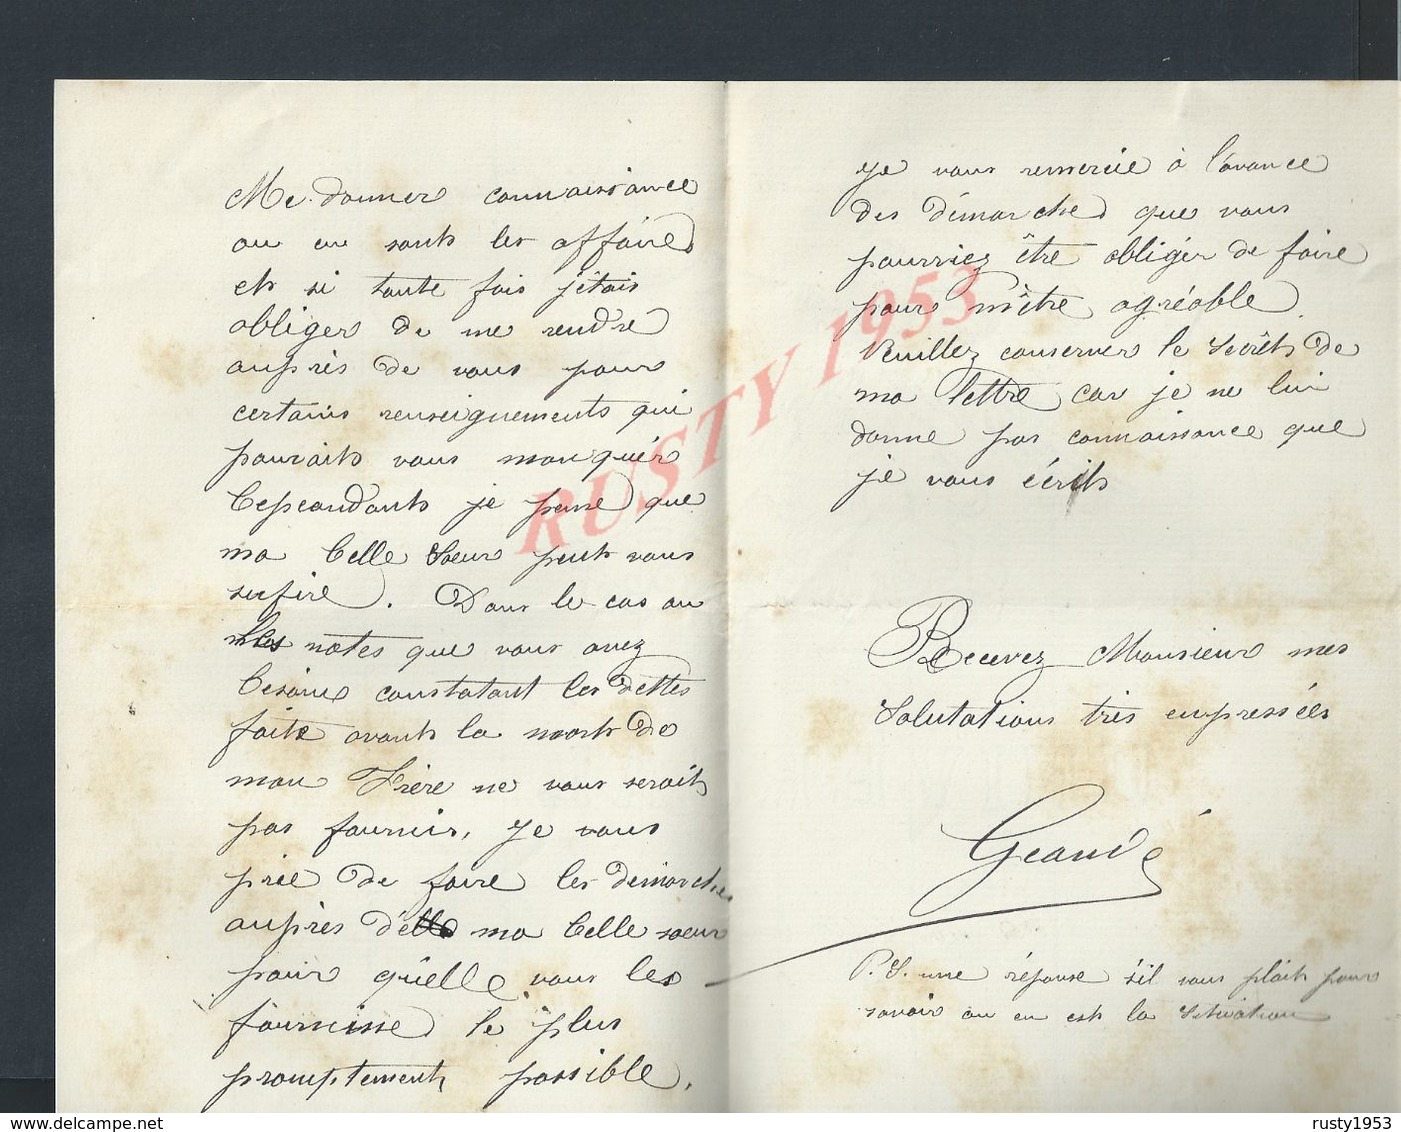 Me donner connaissance
ou en sont les affaires
et si toute fois jétais
obliger de me rendre
auprès de vous pour
certains renseignements qui
pouraits vous manquér
Cependants je pense que
ma belle Sœur peut vous
sufire. Dans le cas ou
les notes que vous avez
besoins constatant les dettes
faite avants la mort de
mon Frère ne vous serait
pas fournir, je vous
prie de faire les démarches
auprès d'elle ma belle sœur
pour qu'elle vous les
fournisse le plus
promptement possible.
Je vous remercie à l'avance
des démarches que vous
pourriez être obligér de faire
pour m'être agréable.
Veuillez conserver le Secrêts de
ma lettre car je ne lui
donne pas connaissance que
je vous écrits
Recevez Monsieur mes
Salutations très empressées
Geandé
P.S. une réponse s'il vous plaît pour
savoir ou en est la Situation
RUSTY 1953
delcampe.net
rusty1953